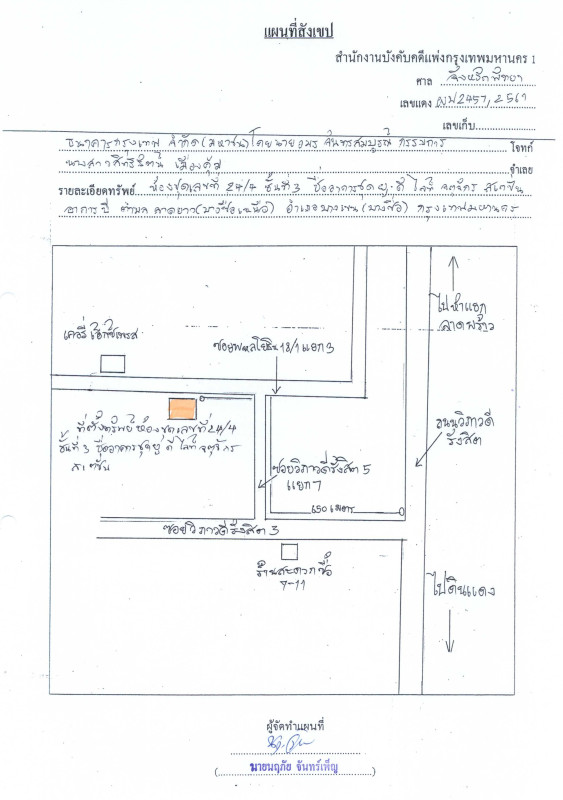 แผนที่สังเขป
สำนักงานบังคับคดีแพ่งกรุงเทพมหานคร 1
ศาล จังหวัดพัทยา
เลขแดง ผบ2457/2561
เลขเก็บ
ธนาคารกรุงเทพ จำกัด(มหาชน)โดยนาย จันทรสมบูรณ์ กรรมการ โจทก์
นางสาว จำเลย
รายละเอียดทรัพย์ ห้องชุดเลขที่ 24/4 ชั้นที่ 3 ชื่ออาคารชุด ยู ดีไลท์ จตุจักร สเตชั่น
อาคารบี ตำบล ลาดยาว(บางซื่อเหนือ) อำเภอบางเขน(บางซื่อ) กรุงเทพมหานคร
ไปห้าแยก
ลาดพร้าว
เคอรี่ เอ็กซ์เพรส
ซอยพหลโยธิน 18/1 แยก 3
ที่ตั้งทรัพย์ ห้องชุดเลขที่ 24/4
ชั้นที่ 3 ชื่ออาคารชุด ยู ดีไลท์ จตุจักร
สเตชั่น
ถนนวิภาวดี
รังสิต
ซอยวิภาวดีรังสิต 5
แยก 7
650 เมตร
ซอยวิภาวดีรังสิต 3
ร้านสะดวกซื้อ
7-11
ไปดินแดง
ผู้จัดทำแผนที่
(นายนฤภัย จันทร์เพ็ญ)